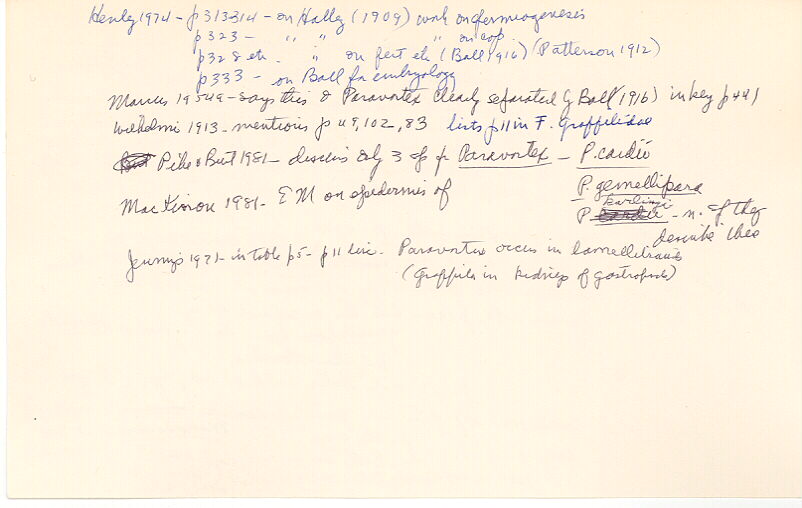 Henley 1974 - p 313-314 - on Hallez (1909) work on spermiogenesis
p 323 - " " " on cop.
p 328 etc. " on fert etc (Ball 1916) (Patterson 1912)
p 333 - on Ball for embryology
Marcus 1954a - says this & Paravortex clearly separated by Ball (1916) in key p 441
Wilhelmi 1913 - mentions p 49, 102, 83 lists p 11 in F. Graffillidae
Pike & Burt 1981 - discuss only 3 sp for Paravortex - P. cardii
P. gemellipara
MacKinnon 1981 - EM on epidermis of
karlingi
P. - n. sp they
describe
Jennings 1971 - in table p 5 - p 11 - Paravortex occurs in lamellibranchs
(Graffilla in kidneys of gastropods)